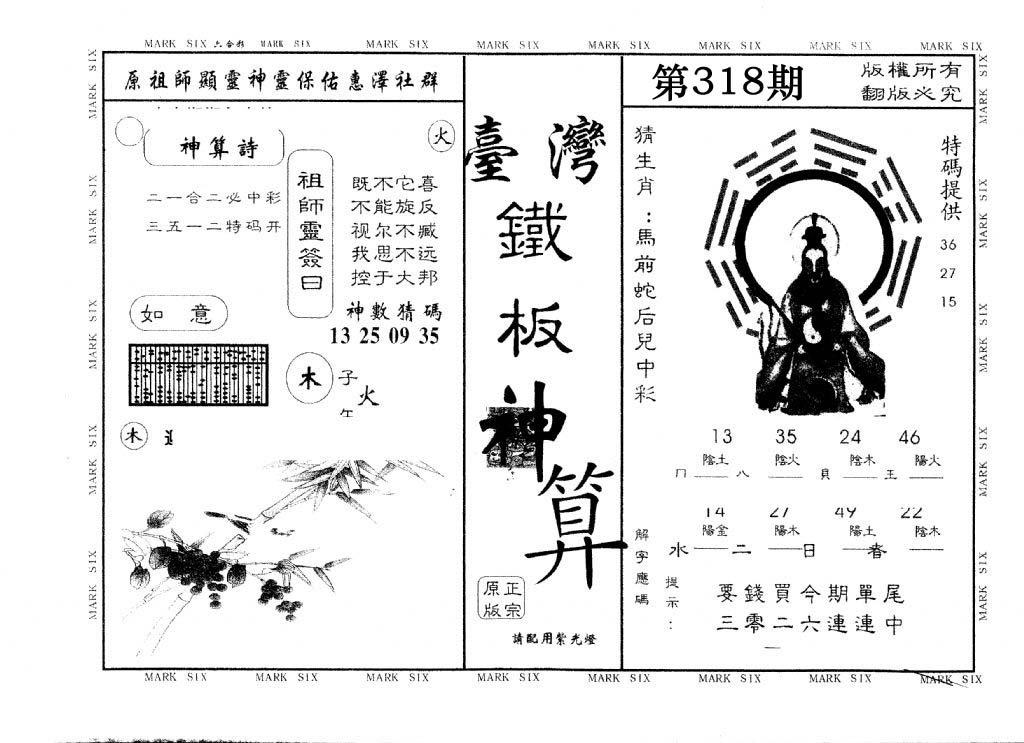 MARK SIX 六合彩 MARK SIX MARK SIX MARK SIX MARK SIX MARK SIX MARK SIX MARK SIX
原祖師顯靈神靈保佑惠澤社群
火
神算詩
二一合二必中彩
三五一二特码开
祖師靈簽曰
既不它喜
不能旋反
视尔不臧
我思不远
控于大邦
神數猜碼
13 25 09 35
如意
木
子
火
午
木
臺灣
鐵
板
神
算
正宗
原版
請配用紫光燈
第318期
版權所有
翻版必究
猜生肖：馬前蛇后兒中彩
特碼提供
36
27
15
13 35 24 46
陰土 陰火 陰木 陽火
八 貝 玉
14 27 49 22
陽金 陽木 陽土 陰木
水 二 日 春
解字應碼
提示：
要錢買今期單尾
三零二六連連中
MARK SIX MARK SIX MARK SIX MARK SIX MARK SIX MARK SIX MARK SIX MARK SIX
MARK SIX MARK SIX MARK SIX MARK SIX MARK SIX
MARK SIX MARK SIX MARK SIX MARK SIX MARK SIX